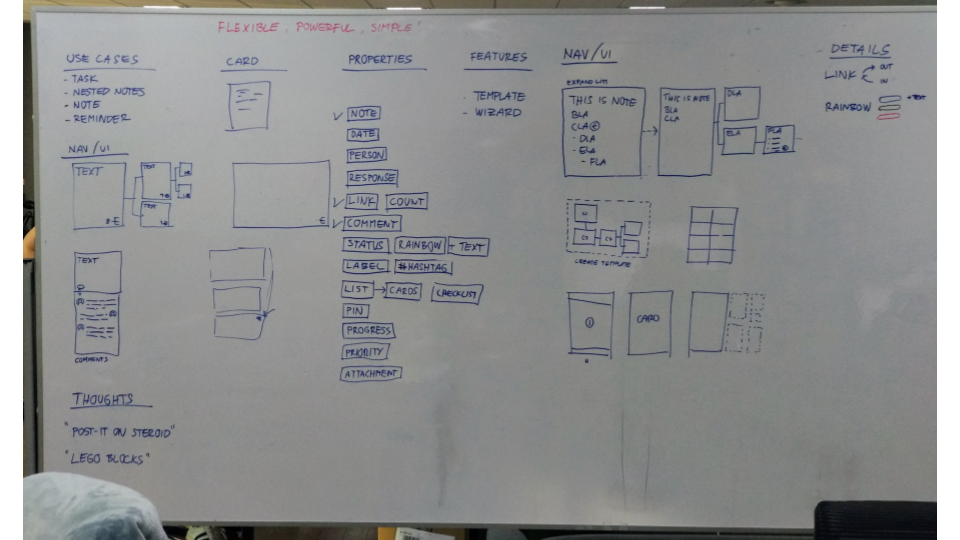 FLEXIBLE, POWERFUL, SIMPLE!
USE CASES
- TASK
- NESTED NOTES
- NOTE
- REMINDER
NAV/UI
TEXT
TEXT
TEXT
TEXT
COMMENTS
THOUGHTS
"POST-IT ON STEROID"
"LEGO BLOCKS"
CARD
PROPERTIES
NOTE
DATE
PERSON
RESPONSE
LINK COUNT
COMMENT
STATUS RAINBOW + TEXT
LABEL #HASHTAG
LIST → CARDS CHECKLIST
PIN
PROGRESS
PRIORITY
ATTACHMENT
FEATURES
- TEMPLATE
- WIZARD
NAV/UI
EXPAND LIST
THIS IS NOTE
BLA
CLA
- DLA
- ELA
- FLA
THIS IS NOTE
BLA
CLA
DLA
ELA
FLA
CREATE TEMPLATE
CARD
DETAILS
LINK OUT
IN
RAINBOW + TEXT